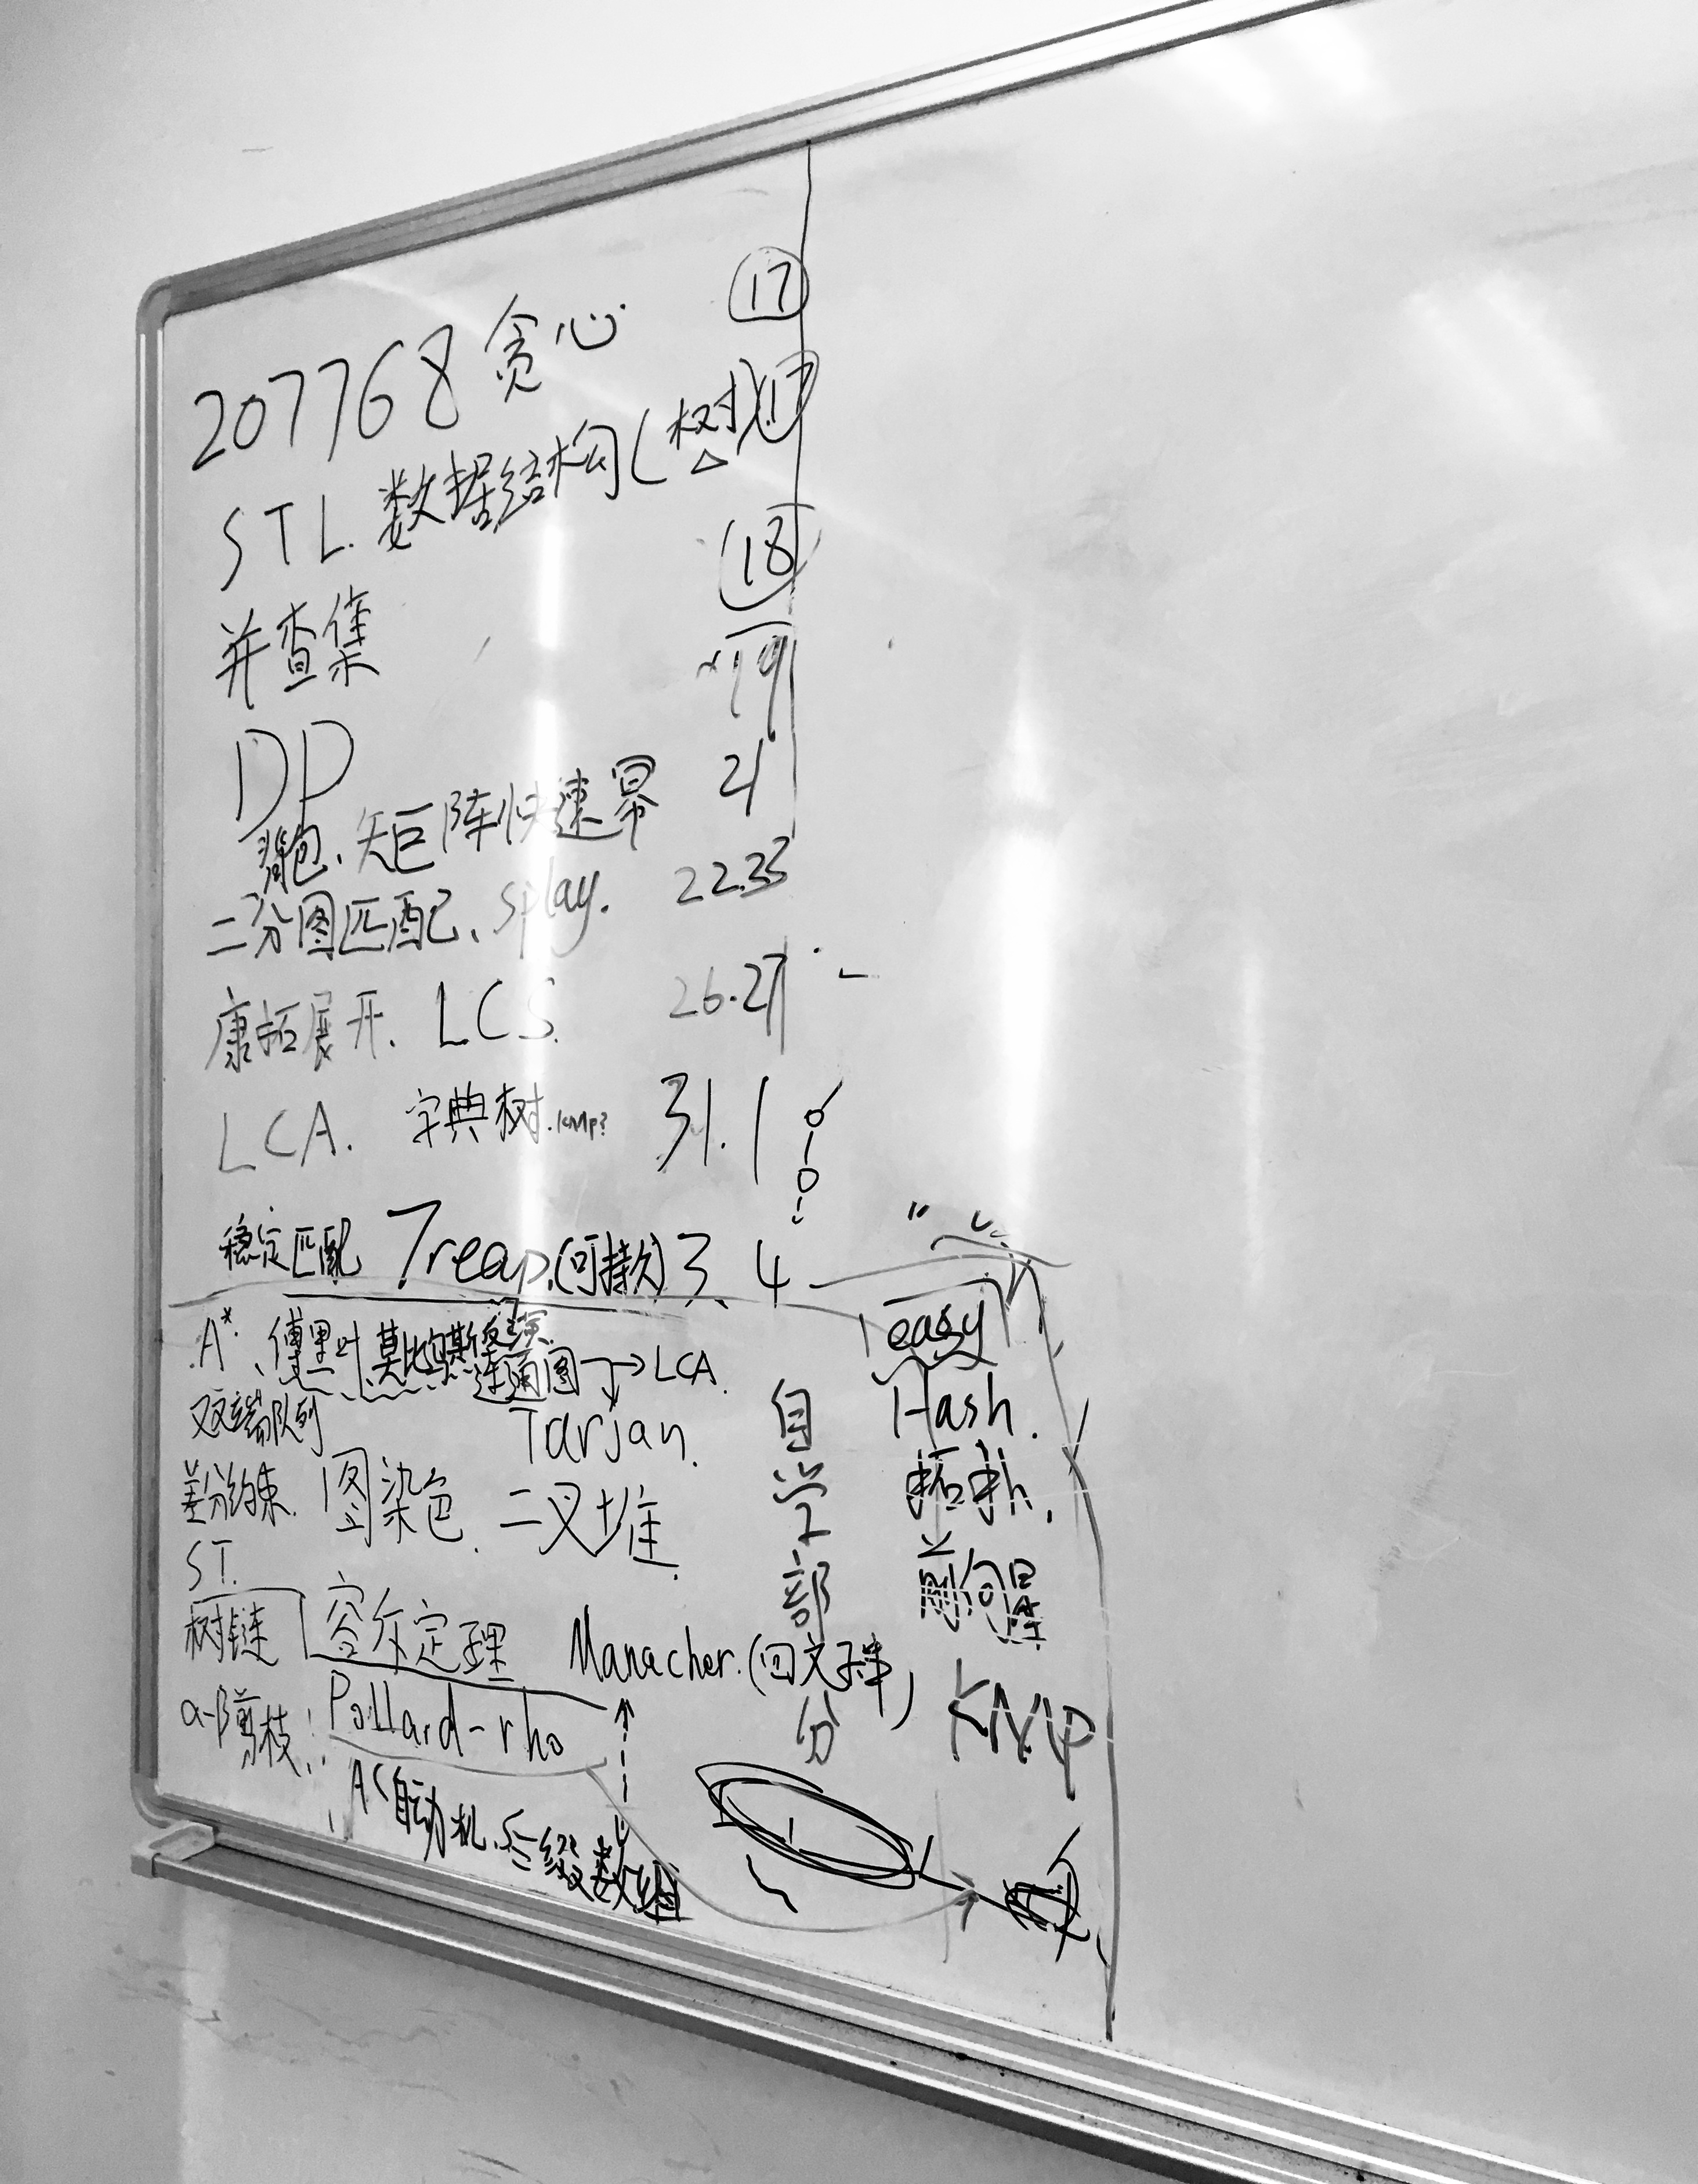 207768 贪心 17
STL. 数据结构(树) 17
18
并查集 19
DP 21
背包、矩阵快速幂
二分图匹配、splay. 22.23
康拓展开. LCS. 26.27
LCA. 字典树.kmp? 31.1
稳定匹配 Treap.(可持久) 3、4
A*、傅里叶 莫比乌斯反演
连通图 → LCA.
双端队列 Tarjan.
差分约束. 图染色. 二叉堆.
ST.
树链 容斥定理 Manacher.(回文子串)
α-β剪枝 Pollard-rho
AC自动机、后缀数组
自学部分
easy
Hash.
拓扑.
前向星
KMP